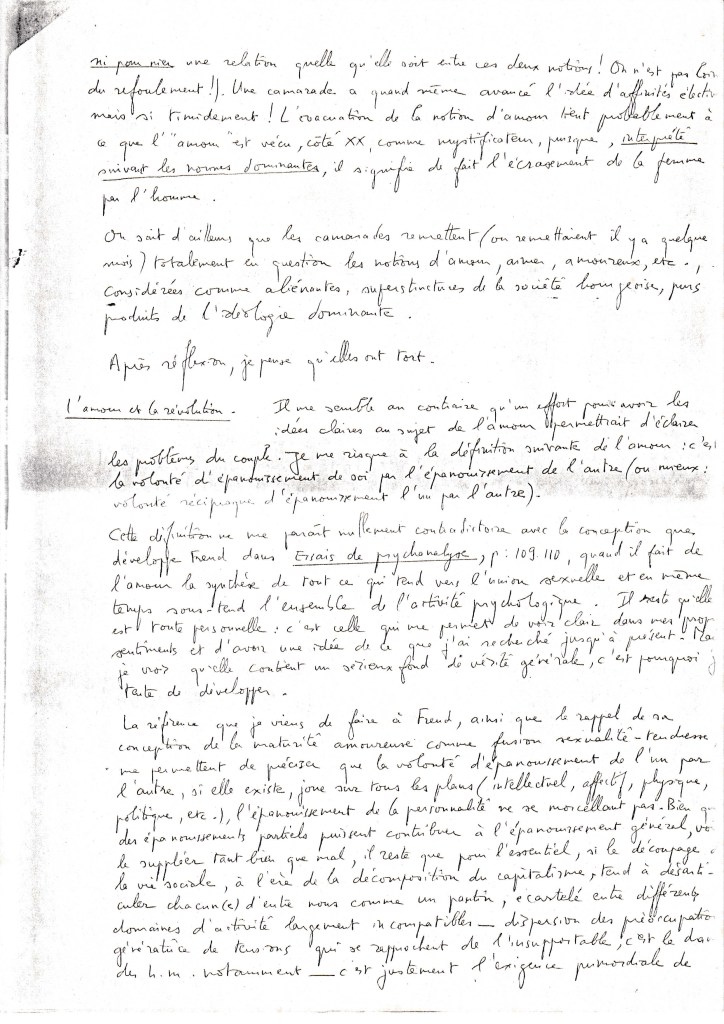 ni pour rien une relation quelle qu'elle soit entre ces deux notions ! On n'est pas loin
du refoulement !). Une camarade a quand même avancé l'idée d'affinités électiv
mais si timidement ! L'évacuation de la notion d'amour tient probablement à
ce que l'"amour" est vécu, côté XX, comme mystificateur, puisque, interprété
suivant les normes dominantes, il signifie de fait l'écrasement de la femme
par l'homme.
On sait d'ailleurs que les camarades remettent (ou remettaient il y a quelque
mois) totalement en question les notions d'amour, aimer, amoureux, etc.,
considérées comme aliénantes, superstructures de la société bourgeoise, purs
produits de l'idéologie dominante.
Après réflexion, je pense qu'elles ont tort.
l'amour et la révolution. Il me semble au contraire qu'un effort pour avoir les
idées claires au sujet de l'amour permettrait d'éclairer
les problèmes du couple. Je me risque à la définition suivante de l'amour : c'est
la volonté d'épanouissement de soi par l'épanouissement de l'autre (ou mieux :
volonté réciproque d'épanouissement l'un par l'autre).
Cette définition ne me paraît nullement contradictoire avec la conception que
développe Freud dans Essais de psychanalyse, p : 109.110, quand il fait de
l'amour la synthèse de tout ce qui tend vers l'union sexuelle et en même
temps sous-tend l'ensemble de l'activité psychologique. Il reste qu'elle
est toute personnelle : c'est celle qui me permet de voir clair dans mes prop
sentiments et d'avoir une idée de ce que j'ai recherché jusqu'à présent. Ma
je crois qu'elle contient un sérieux fond de vérité générale, c'est pourquoi j
tate de développer.
La référence que je viens de faire à Freud, ainsi que le rappel de sa
conception de la maturité amoureuse comme fusion sexualité-tendresse
me permettent de préciser que la volonté d'épanouissement de l'un par
l'autre, si elle existe, joue sur tous les plans (intellectuel, affectif, physique,
politique, etc.), l'épanouissement de la personnalité ne se morcellant pas. Bien qu
des épanouissements partiels puissent contribuer à l'épanouissement général, vo
le suppléer tant bien que mal, il reste que pour l'essentiel, si le découpage
la vie sociale, à l'ère de la décomposition du capitalisme, tend à désarti-
culer chacun(e) d'entre nous comme un pantin, écartelé entre différents
domaines d'activité largement incompatibles — dispersion des préoccupation
génératrice de tensions qui se rapprochent de l'insupportable, c'est le
des h.m. notamment — c'est justement l'exigence primordiale de